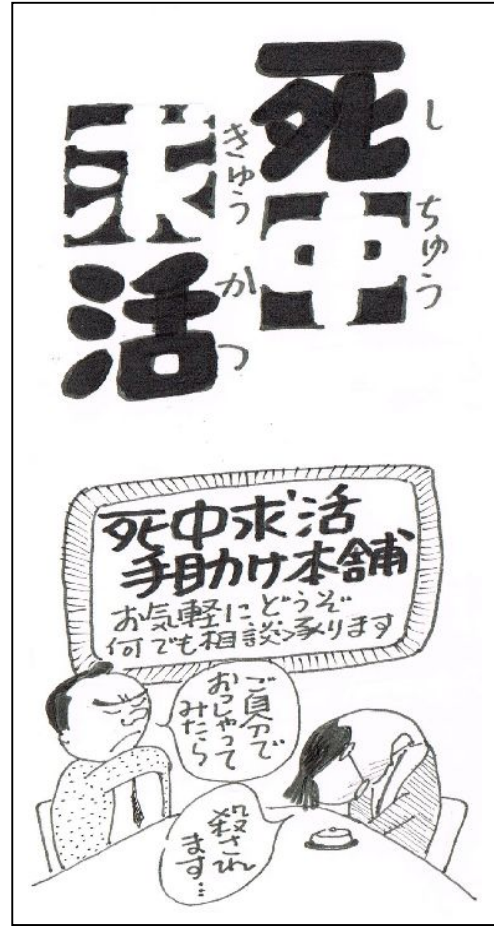 死中
しちゅう
求活
きゅうかつ
死中求活
手助け本舗
お気軽にどうぞ
何でも相談承ります
ご自分で
おっしゃって
みたら
殺され
ます…